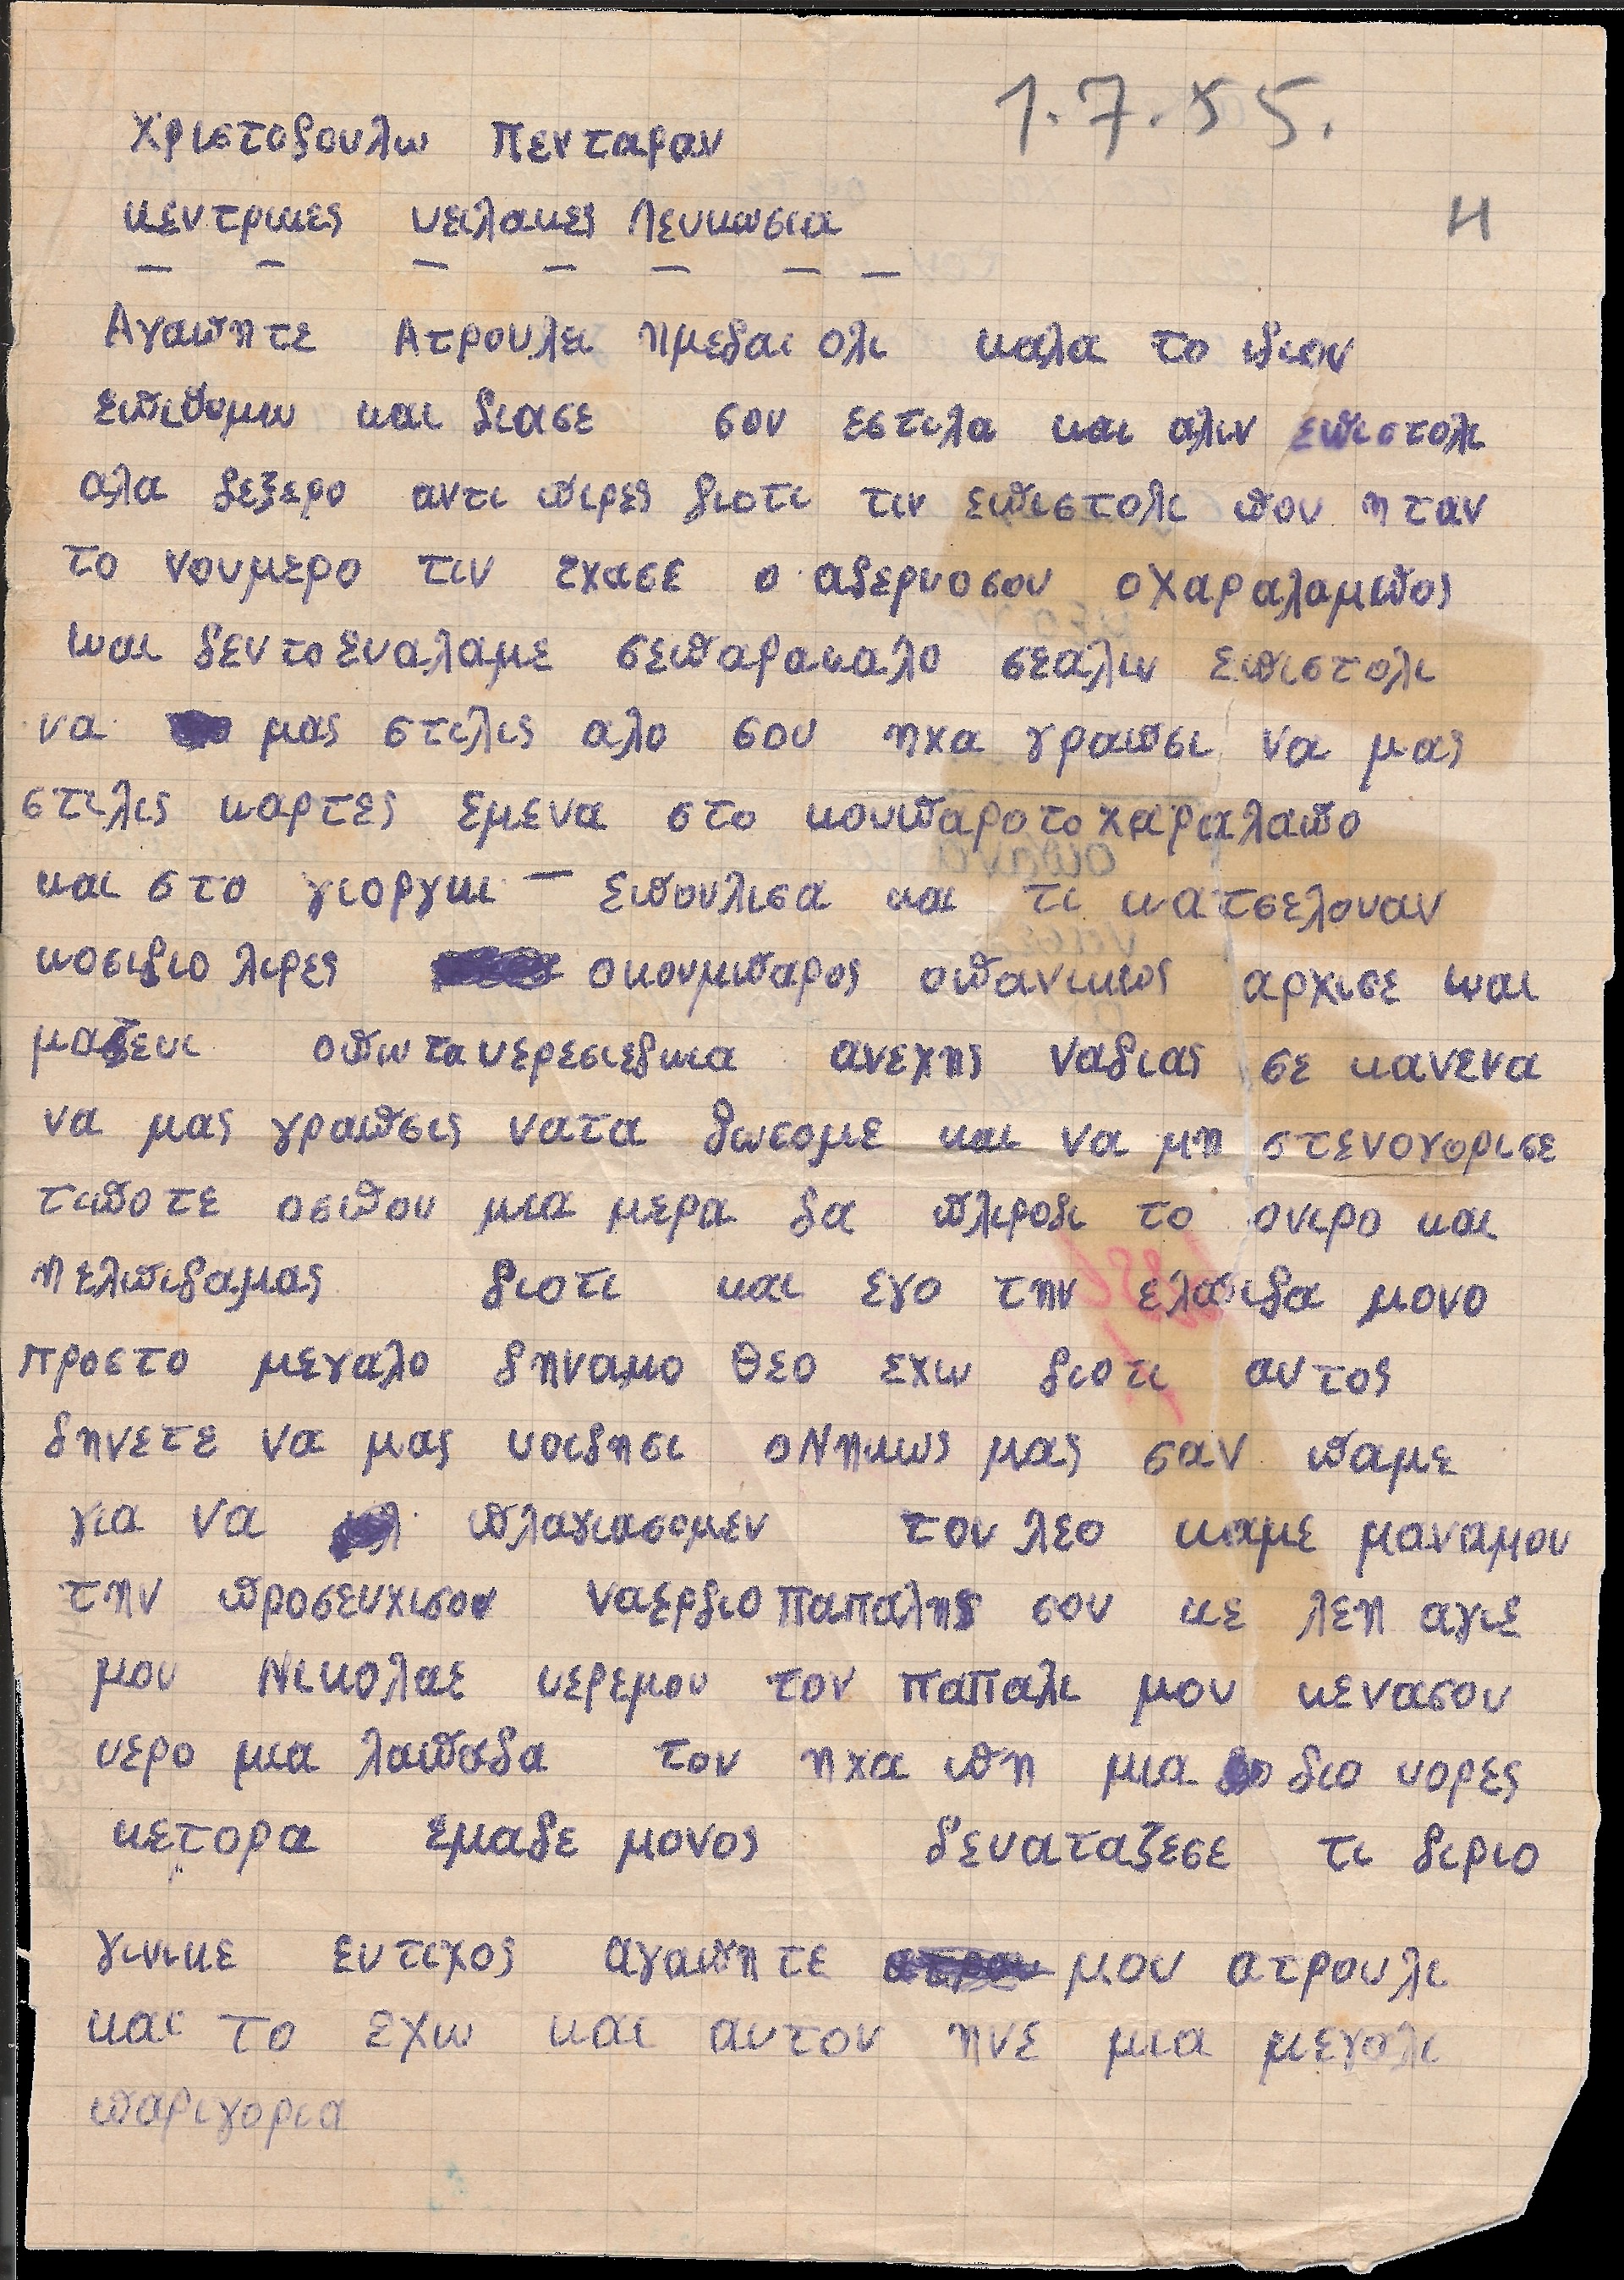 1.7.55.
Χριστοδουλω Πενταραν
κεντρικες φειλακες Λευκωσια
Η
Αγαπητε Ατρουλει ημεδαι ολι καλα το ιδιον
επιθυμω και διασε σου εστιλα και αλιν επιστολι
αλα δεξερο αντι πιρες διοτι τιν επιστολι που ηταν
το νουμερο τιν εχασε ο αδερφοσου οχαραλαμπος
και δεντοεφαλαμε σεπαρακαλο σεαλιν επιστολι
να μας στιλις αλο σου ηχα γραπσι να μας
στιλις καρτες εμενα στο κουπαροτοχαραλαπο
και στο γιοργκι — επουλισα και τι κατσελουαν
κοσιδιο λιρες οκουμπαρος οπανικκος αρχισε και
μαζευι οπωταφερεσιεδικα ανεχης ναδιας σε κανενα
να μας γραπσις νατα δωσομε και να μη στενοχορισε
τιποτε οσιπου μια μερα δα πλιροδι το ονιρο και
ηελπιδαμας διοτι και εγο την ελπιδα μονο
προστο μεγαλο δηναμο Θεο εχω διοτι αυτος
δηνετε να μας υοιδησι οΝηκως μας σαν παμε
για να πλαγιασομεν τον λεο καμε μαναμου
την προσευχισου ναερδιοπαπαλης σου κε λεη αγιε
μου Νικολαε φερεμου τον παπαλι μου κενασου
φερο μια λαπαδα τον ηχα πη μια διο φορες
κετορα εμαδε μονος δεφαταζεσε τι διριο
γινικε ευτιχος αγαπητε μου ατρουλι
και το εχω και αυτον ηνε μια μεγαλι
παριγορια